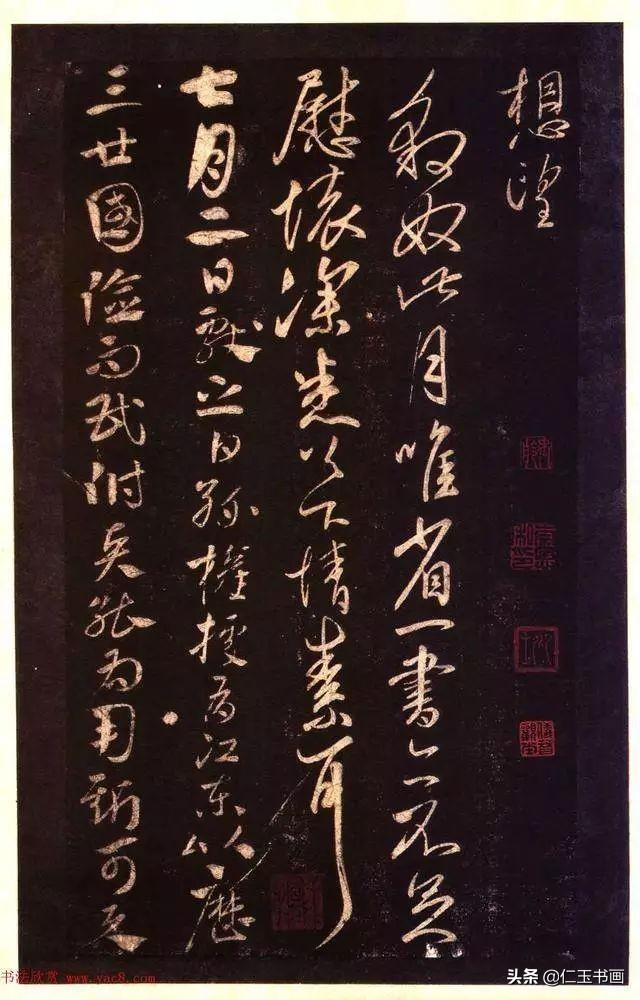 想望
豹奴此月唯省一書亦不足
慰懷深以下情素耳
七月二日獻之白孫權據有江東以歷
三世國險而民附賢能為用斯可
书法欣赏 www.yac8.com
头条 @仁玉书画